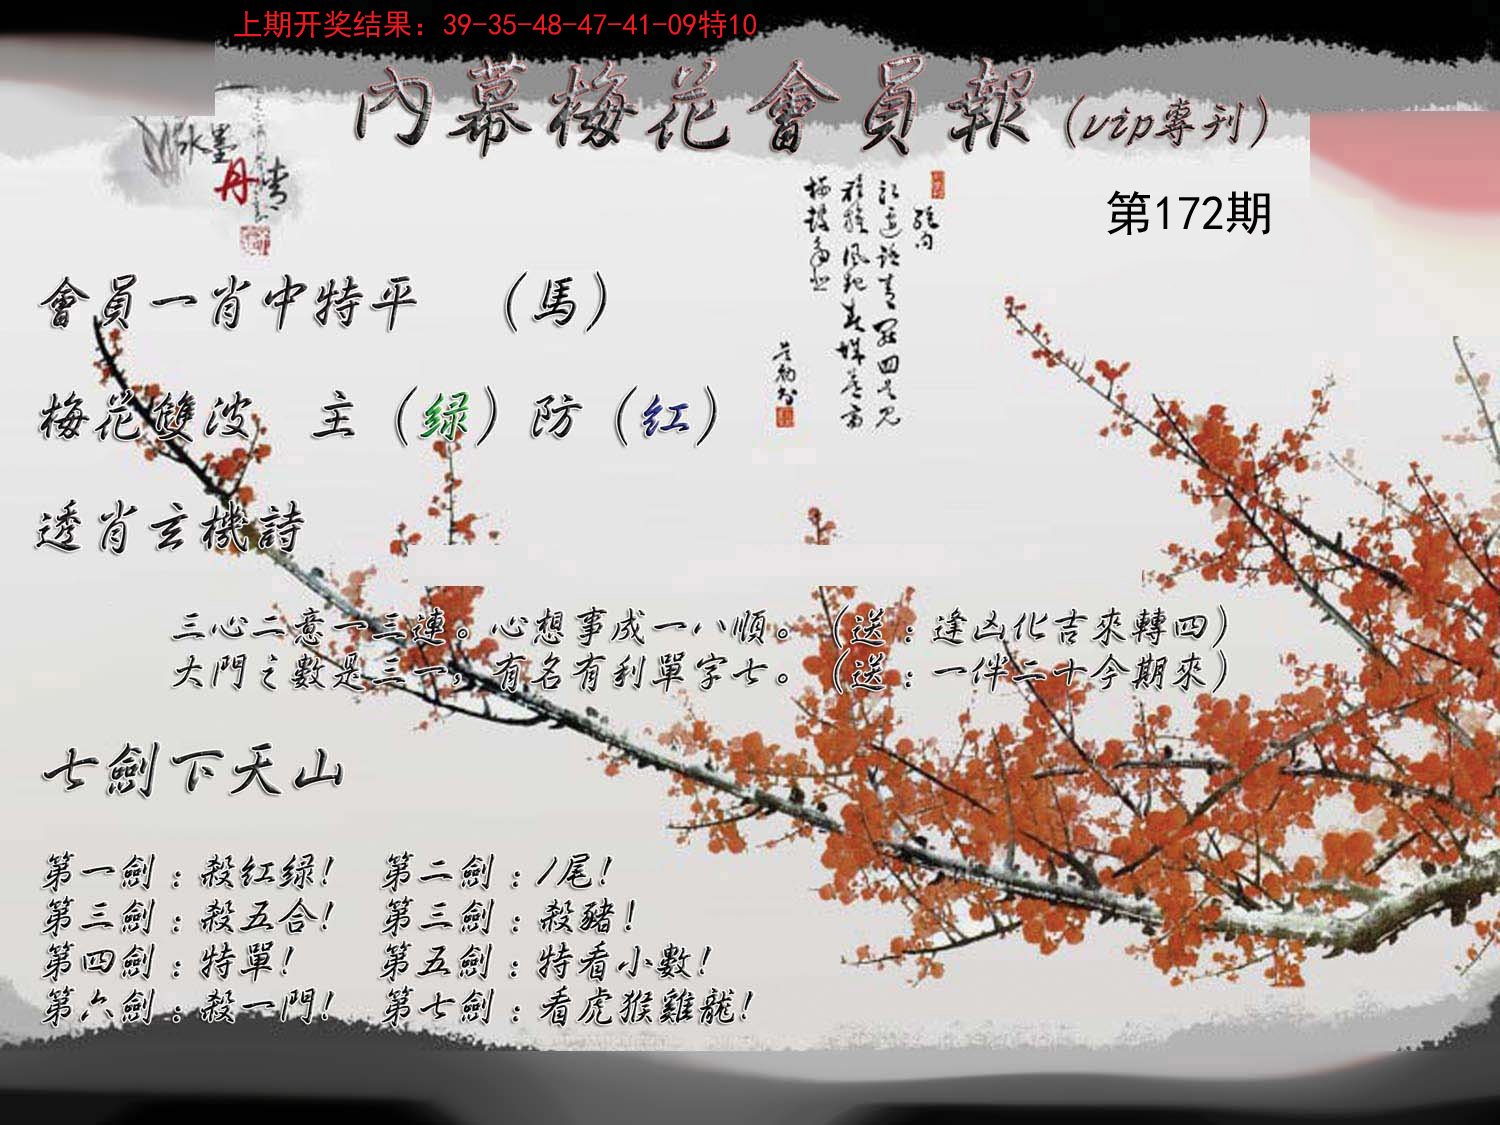 上期开奖结果：39-35-48-47-41-09特10
內幕梅花會員報（vip專刊）
水墨
丹青
第172期
會員一肖中特平　（馬）
梅花雙波　主（绿）防（红）
透肖玄機詩
三心二意一三連。心想事成一八順。（送：逢凶化吉來轉四）
大門之數是三一，有名有利單字七。（送：一伴二十今期來）
七劍下天山
第一劍：殺红绿！　第二劍：1尾！
第三劍：殺五合！　第三劍：殺豬！
第四劍：特單！　第五劍：特看小數！
第六劍：殺一門！　第七劍：看虎猴雞龍！